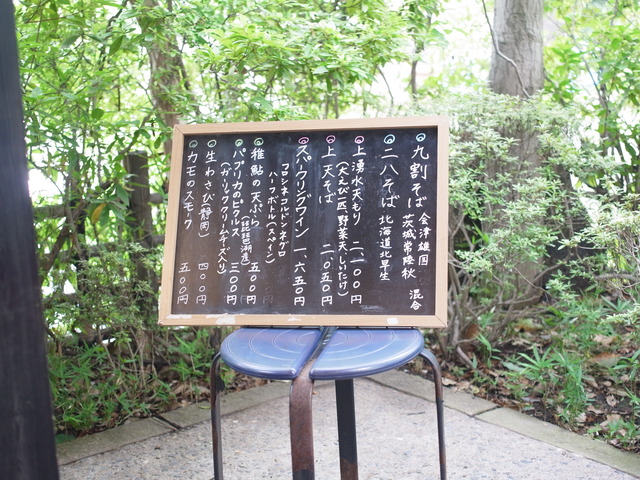 九割そば 会津雄国
茨城常陸秋 混合
二八そば 北海道北早生
上湧水天もり 二、一〇〇円
(大えび二匹 野菜天、しいたけ)
上天そば 二、〇五〇円
スパークリングワイン 一、六五〇円
フロシネ コルドンネグロ
ハーフボトル(スペイン)
稚鮎の天ぷら 五〇〇円
(琵琶湖産)
パプリカのピクルス 三〇〇円
(ガーリッククリームチーズ入り)
生わさび(静岡) 四〇〇円
カモのスモーク 五〇〇円